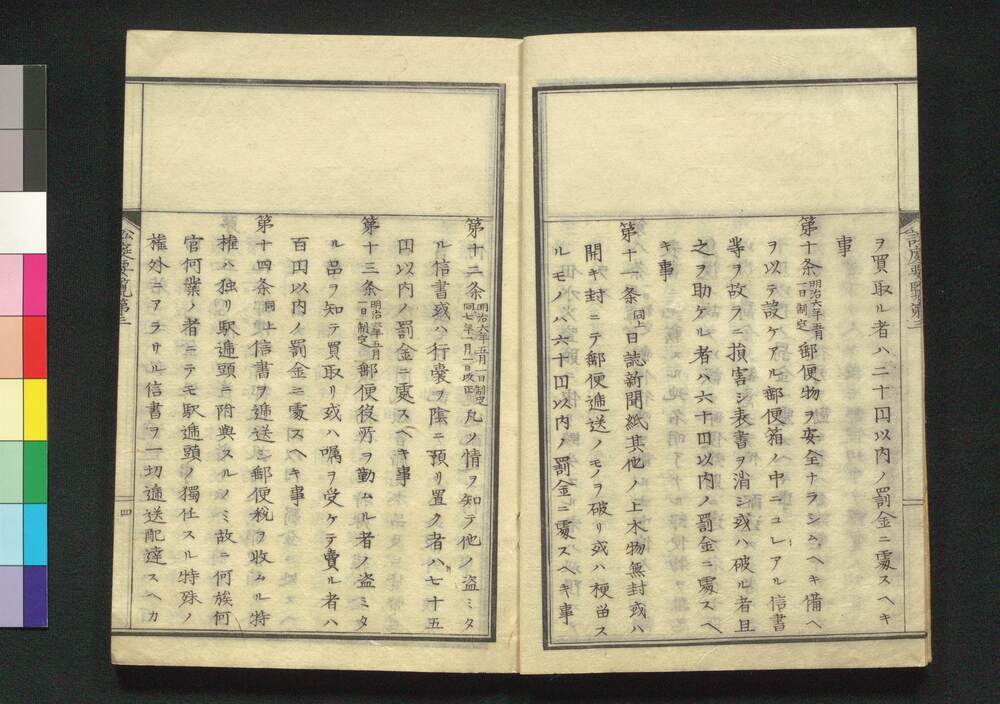 ヲ買取ル者ハ二十円以内ノ罰金ニ處スヘキ
事
第十条明治六年五月一日制定郵便物ヲ安全ナラシムヘキ備ヘ
ヲ以テ設ケアル郵便箱ノ中ニコレアル信書
等ヲ故ラニ損害シ表書ヲ消シ或ハ破ル者且
之ヲ助ケル者ハ六十円以内ノ罰金ニ處スヘ
キ事
第十一条同上日誌新聞紙其他ノ上木物無封或ハ
開キ封ニテ郵便逓送ノモノヲ破リ或ハ梗留ス
ルモノハ六十円以内ノ罰金ニ處スヘキ事
第十二条明治六年五月一日制定同七年一月一日改正凡ソ情ヲ知テ他ノ盗ミタ
ル信書或ハ行嚢ヲ陰ニ預リ置ク者ハ七十五
円以内ノ罰金ニ處スヘキ事
第十三条明治六年五月一日制定郵便役所ヲ勤ムル者ノ盗ミタ
ル品ヲ知テ買取リ或ハ嘱ヲ受ケテ賣ル者ハ
百円以内ノ罰金ニ處スヘキ事
第十四条同上信書ヲ逓送シ郵便税ヲ收ムル特
権ハ独リ駅逓頭ニ附與スルノミ故ニ何族何
官何業ノ者ニテモ駅逓頭ノ獨任スル特殊ノ
権外ニアラサル信書ヲ一切逓送配達スヘカ
四